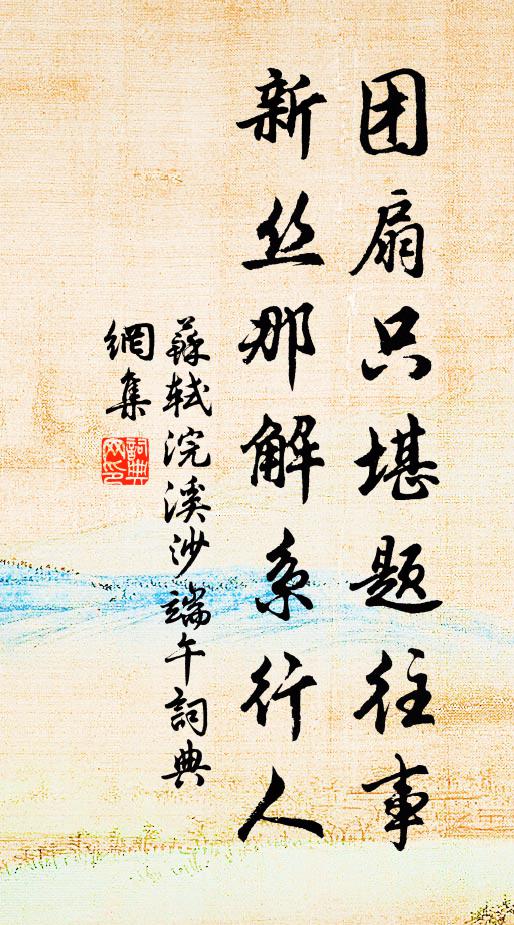 团扇只堪题往事
新丝那解系行人
蘇軾浣溪沙端午詞典
網集
詞典
网印